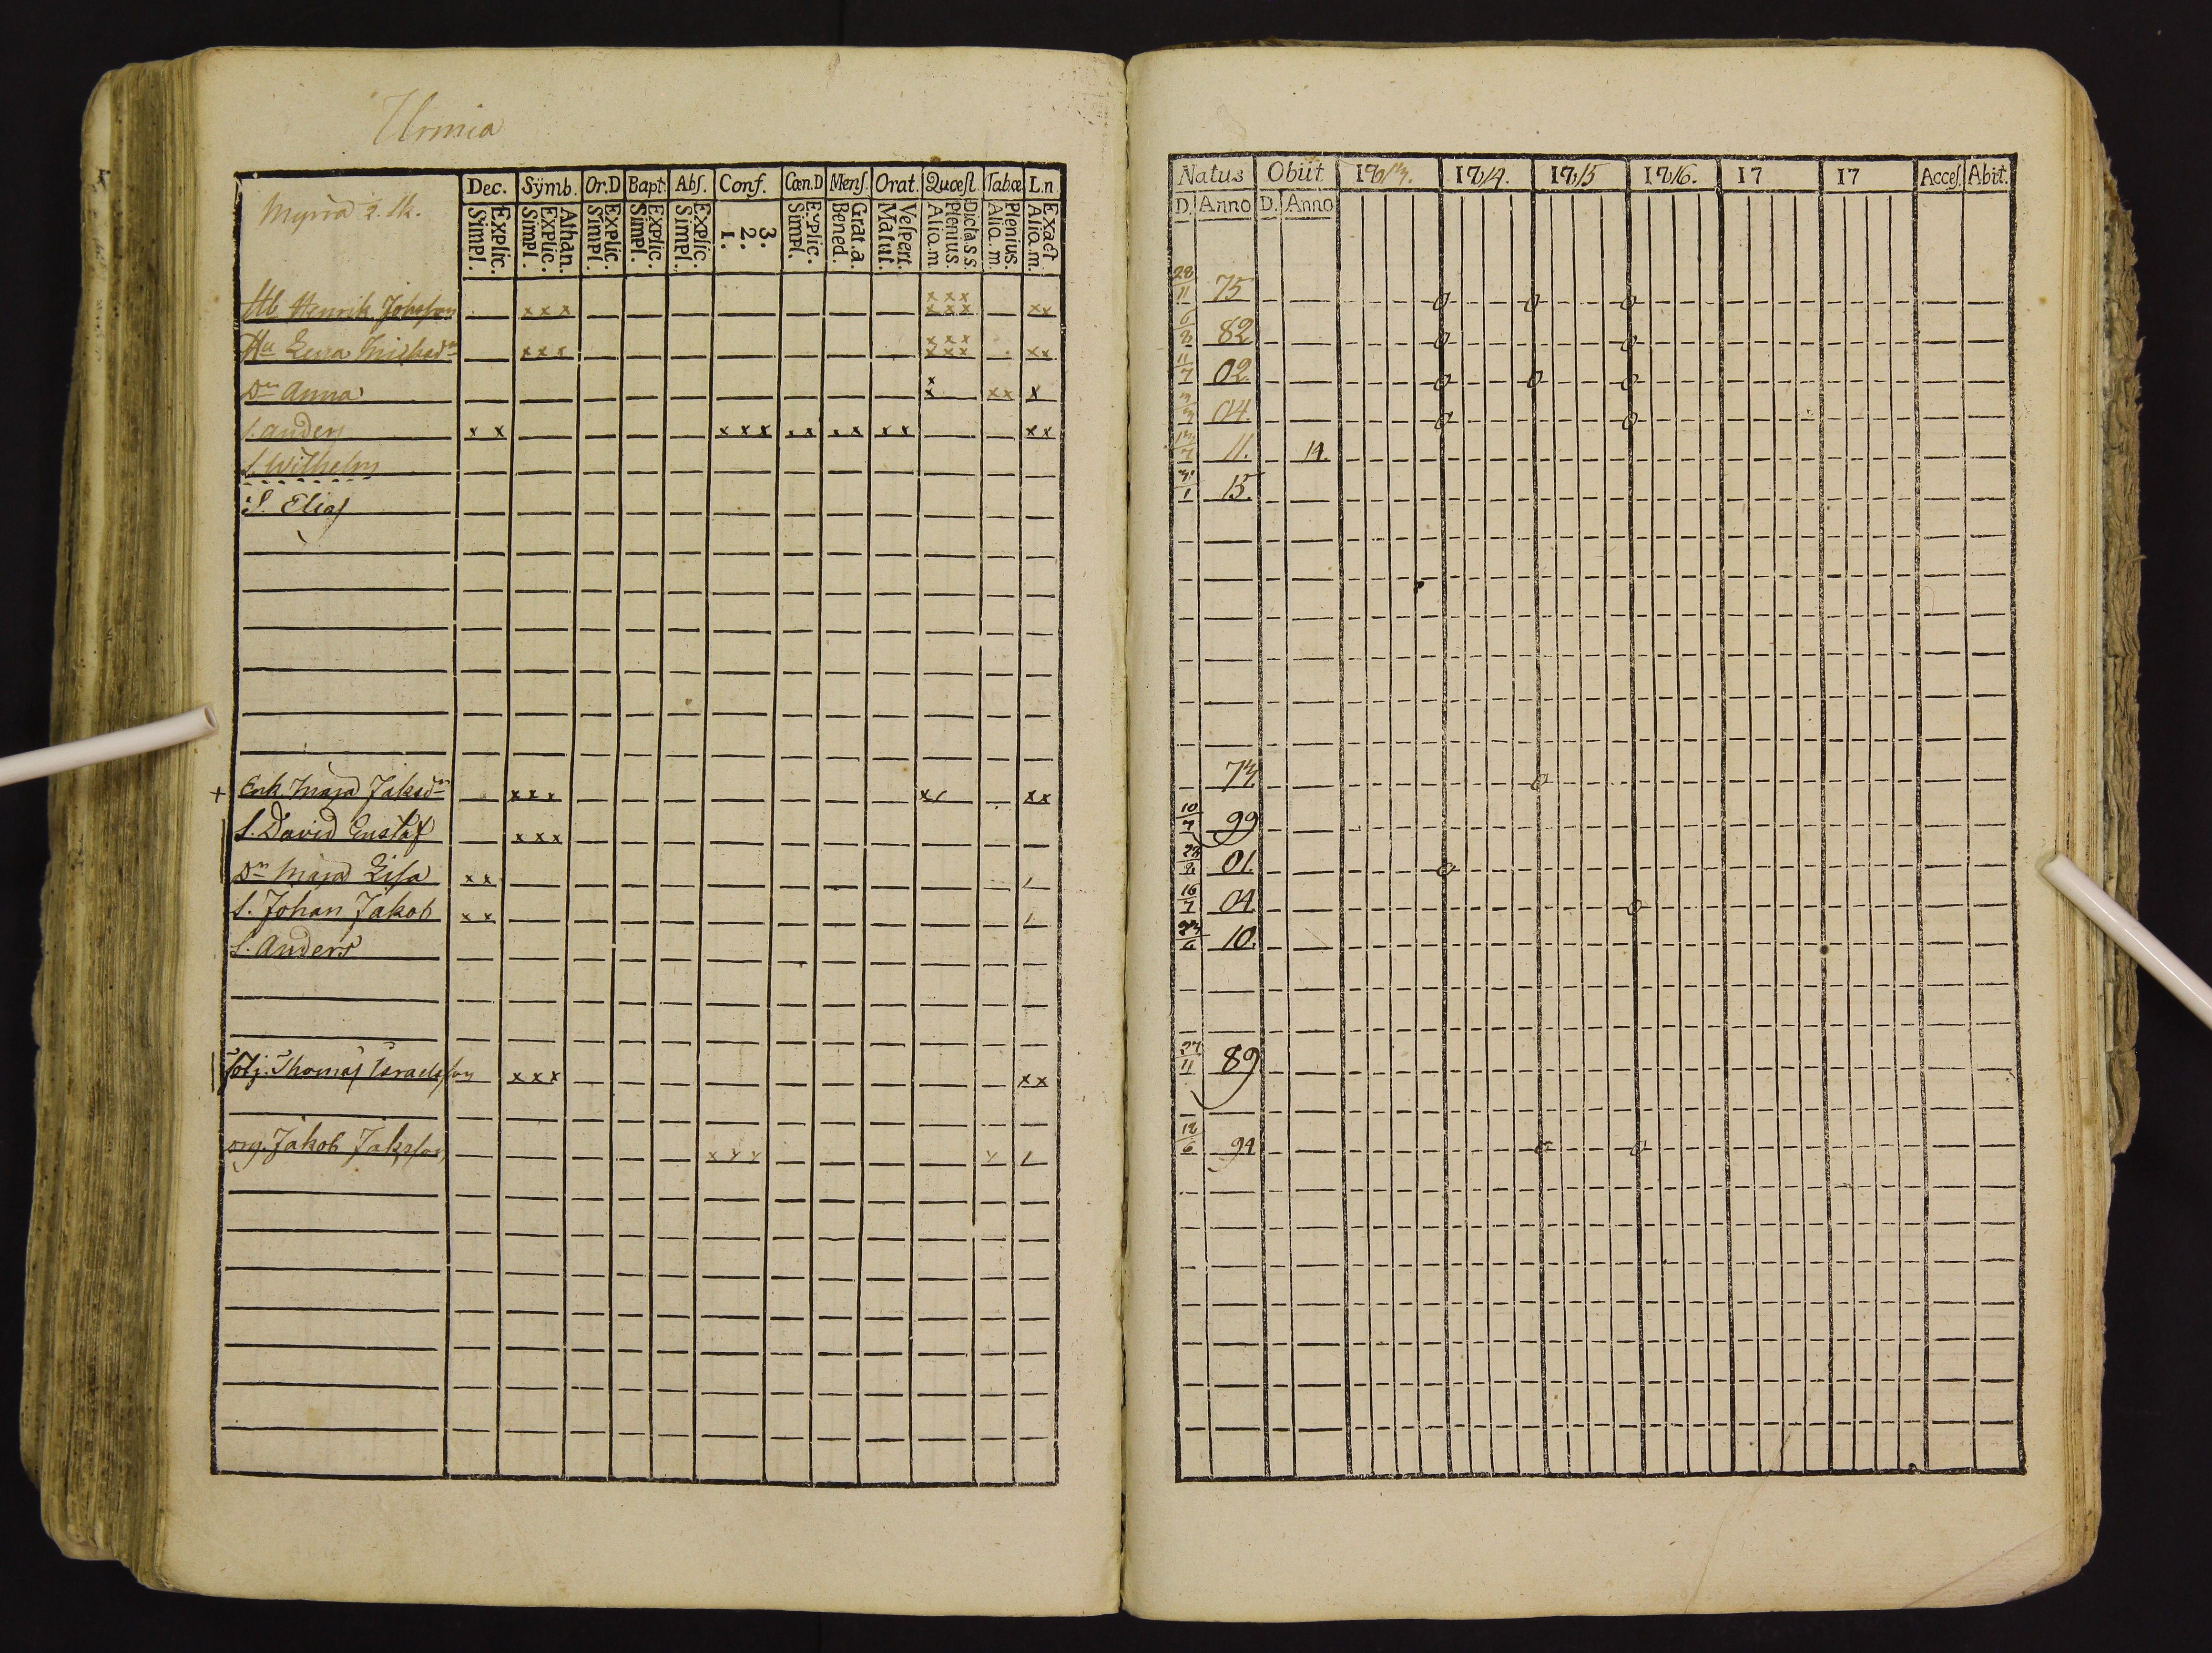 Urmia
Dec. Sÿmb. Or.D Bapt. Abſ. Conf. Cœn.D Menſ. Orat. Quœſt Tabœ L.n
Myrrä 2. lk.
Explic. Simpl. Athan. Explic. Simpl. Explic. Simpl. Explic. Simpl. Explic. Simpl. 3. 2. 1. Explic. Simpl. Grat.a. Bened. Veſpert. Matut. Dicta.s.s. Plenius. Aliq.m Plenius. Aliq.m. Exact Aliq.m.
Hb Henrik Johsson xxx xxx xxx xx
Hu Lena xxx xxx xxx xx
Dr Anna x x xx x
S. Anders x x xxx xx xx xx xx
S. Wilhelm
S. Elias
+ Enk. Maja Jaksdr xxx x/ xx
S. David Gustaf xxx
Dr Maja Lisa xx /
S. Johan Jakob xx /
S. Anders
Thomas Israelsson xxx xx
Jakob Jaksson xxx x /
Natus Obiit 1813. 1814. 1815 1816. 17 17 Acceſ. Abiit.
D. Anno D. Anno
28/11 75 o o o
6/2 82 o o
11/7 02. o o o
3/3 04. o o
13/7 11. 14.
31/1 15.
73. o
10/7 99
28/2 01. o
16/7 04 o
23/6 10.
27/11 89
12/6 94 o o